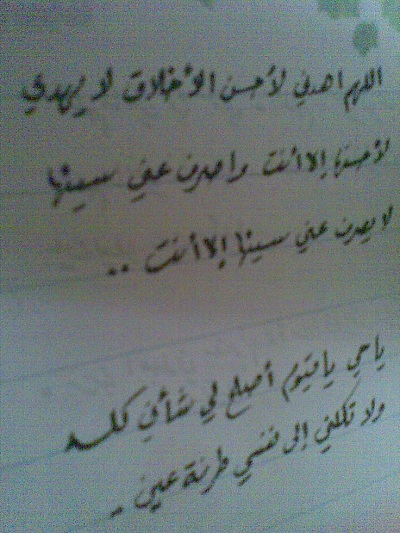 اللهم اهدني لأحسن الأخلاق لا يهدي
لأحسنها إلا أنت واصرف عني سيئها
لا يصرف عني سيئها إلا أنت ..
يا حي يا قيوم أصلح لي شأني كله
ولا تكلني إلى نفسي طرفة عين ..